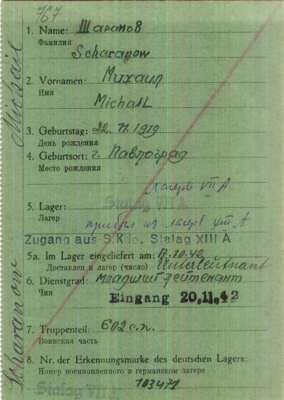 767
1. Name: Шаропов
Фамилия
Scharapow
2. Vornamen: Михаил
Имя
Michail
3. Geburtstag: 22. 11. 1919
День рождения
4. Geburtsort: г. Павлоград
Место рождения
лагерь VII A
5. Lager: Stalag VII A
Лагерь из лагер VII A
Zugang aus S.K. Stalag XIII A
5a. Im Lager eingeliefert am: .10.42
Доставлен в лагерь (число) Unterleutnant
6. Dienstgrad: младший лейтенант
Чин
Eingang 20.11.42
7. Truppenteil: 602 с.п.
Воинская часть
8. Nr. der Erkennungsmarke des deutschen Lagers:
Номер военнопленного в германском лагере
Stalag VII A 103471
Scharapow Michail